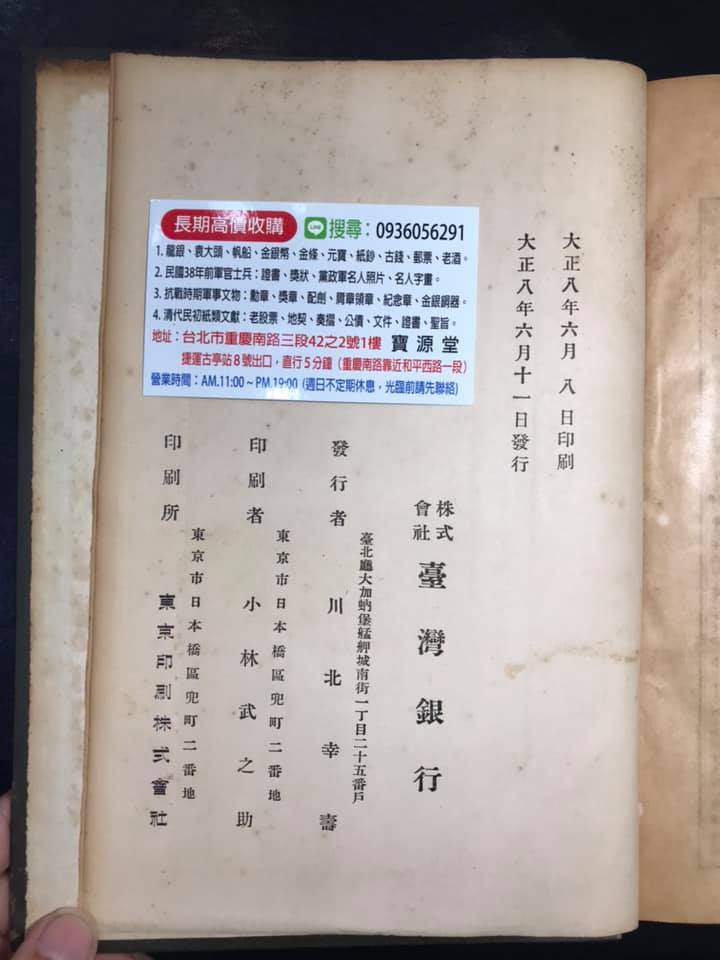 長期高價收購 LINE 搜尋：0936056291
1. 龍銀、袁大頭、帆船、金銀幣、金條、元寶、紙鈔、古錢、郵票、老酒。
2. 民國38年前軍官士兵：證書、獎狀、黨政軍名人照片、名人字畫。
3. 抗戰時期軍事文物：勳章、獎章、配劍、肩章領章、紀念章、金銀銅器。
4. 清代民初紙類文獻：老股票、地契、奏摺、公債、文件、證書、聖旨。
地址：台北市重慶南路三段42之2號1樓 寶源堂
捷運古亭站8號出口，直行5分鐘（重慶南路靠近和平西路一段）
營業時間：AM.11:00～PM.19:00 (週日不定期休息，光臨前請先聯絡)
大正八年六月八日印刷
大正八年六月十一日發行
株式會社 臺灣銀行
臺北廳大加蚋堡艋舺城南街一丁目二十五番戶
發行者 川北幸壽
東京市日本橋區兜町二番地
印刷者 小林武之助
東京市日本橋區兜町二番地
印刷所 東京印刷株式會社